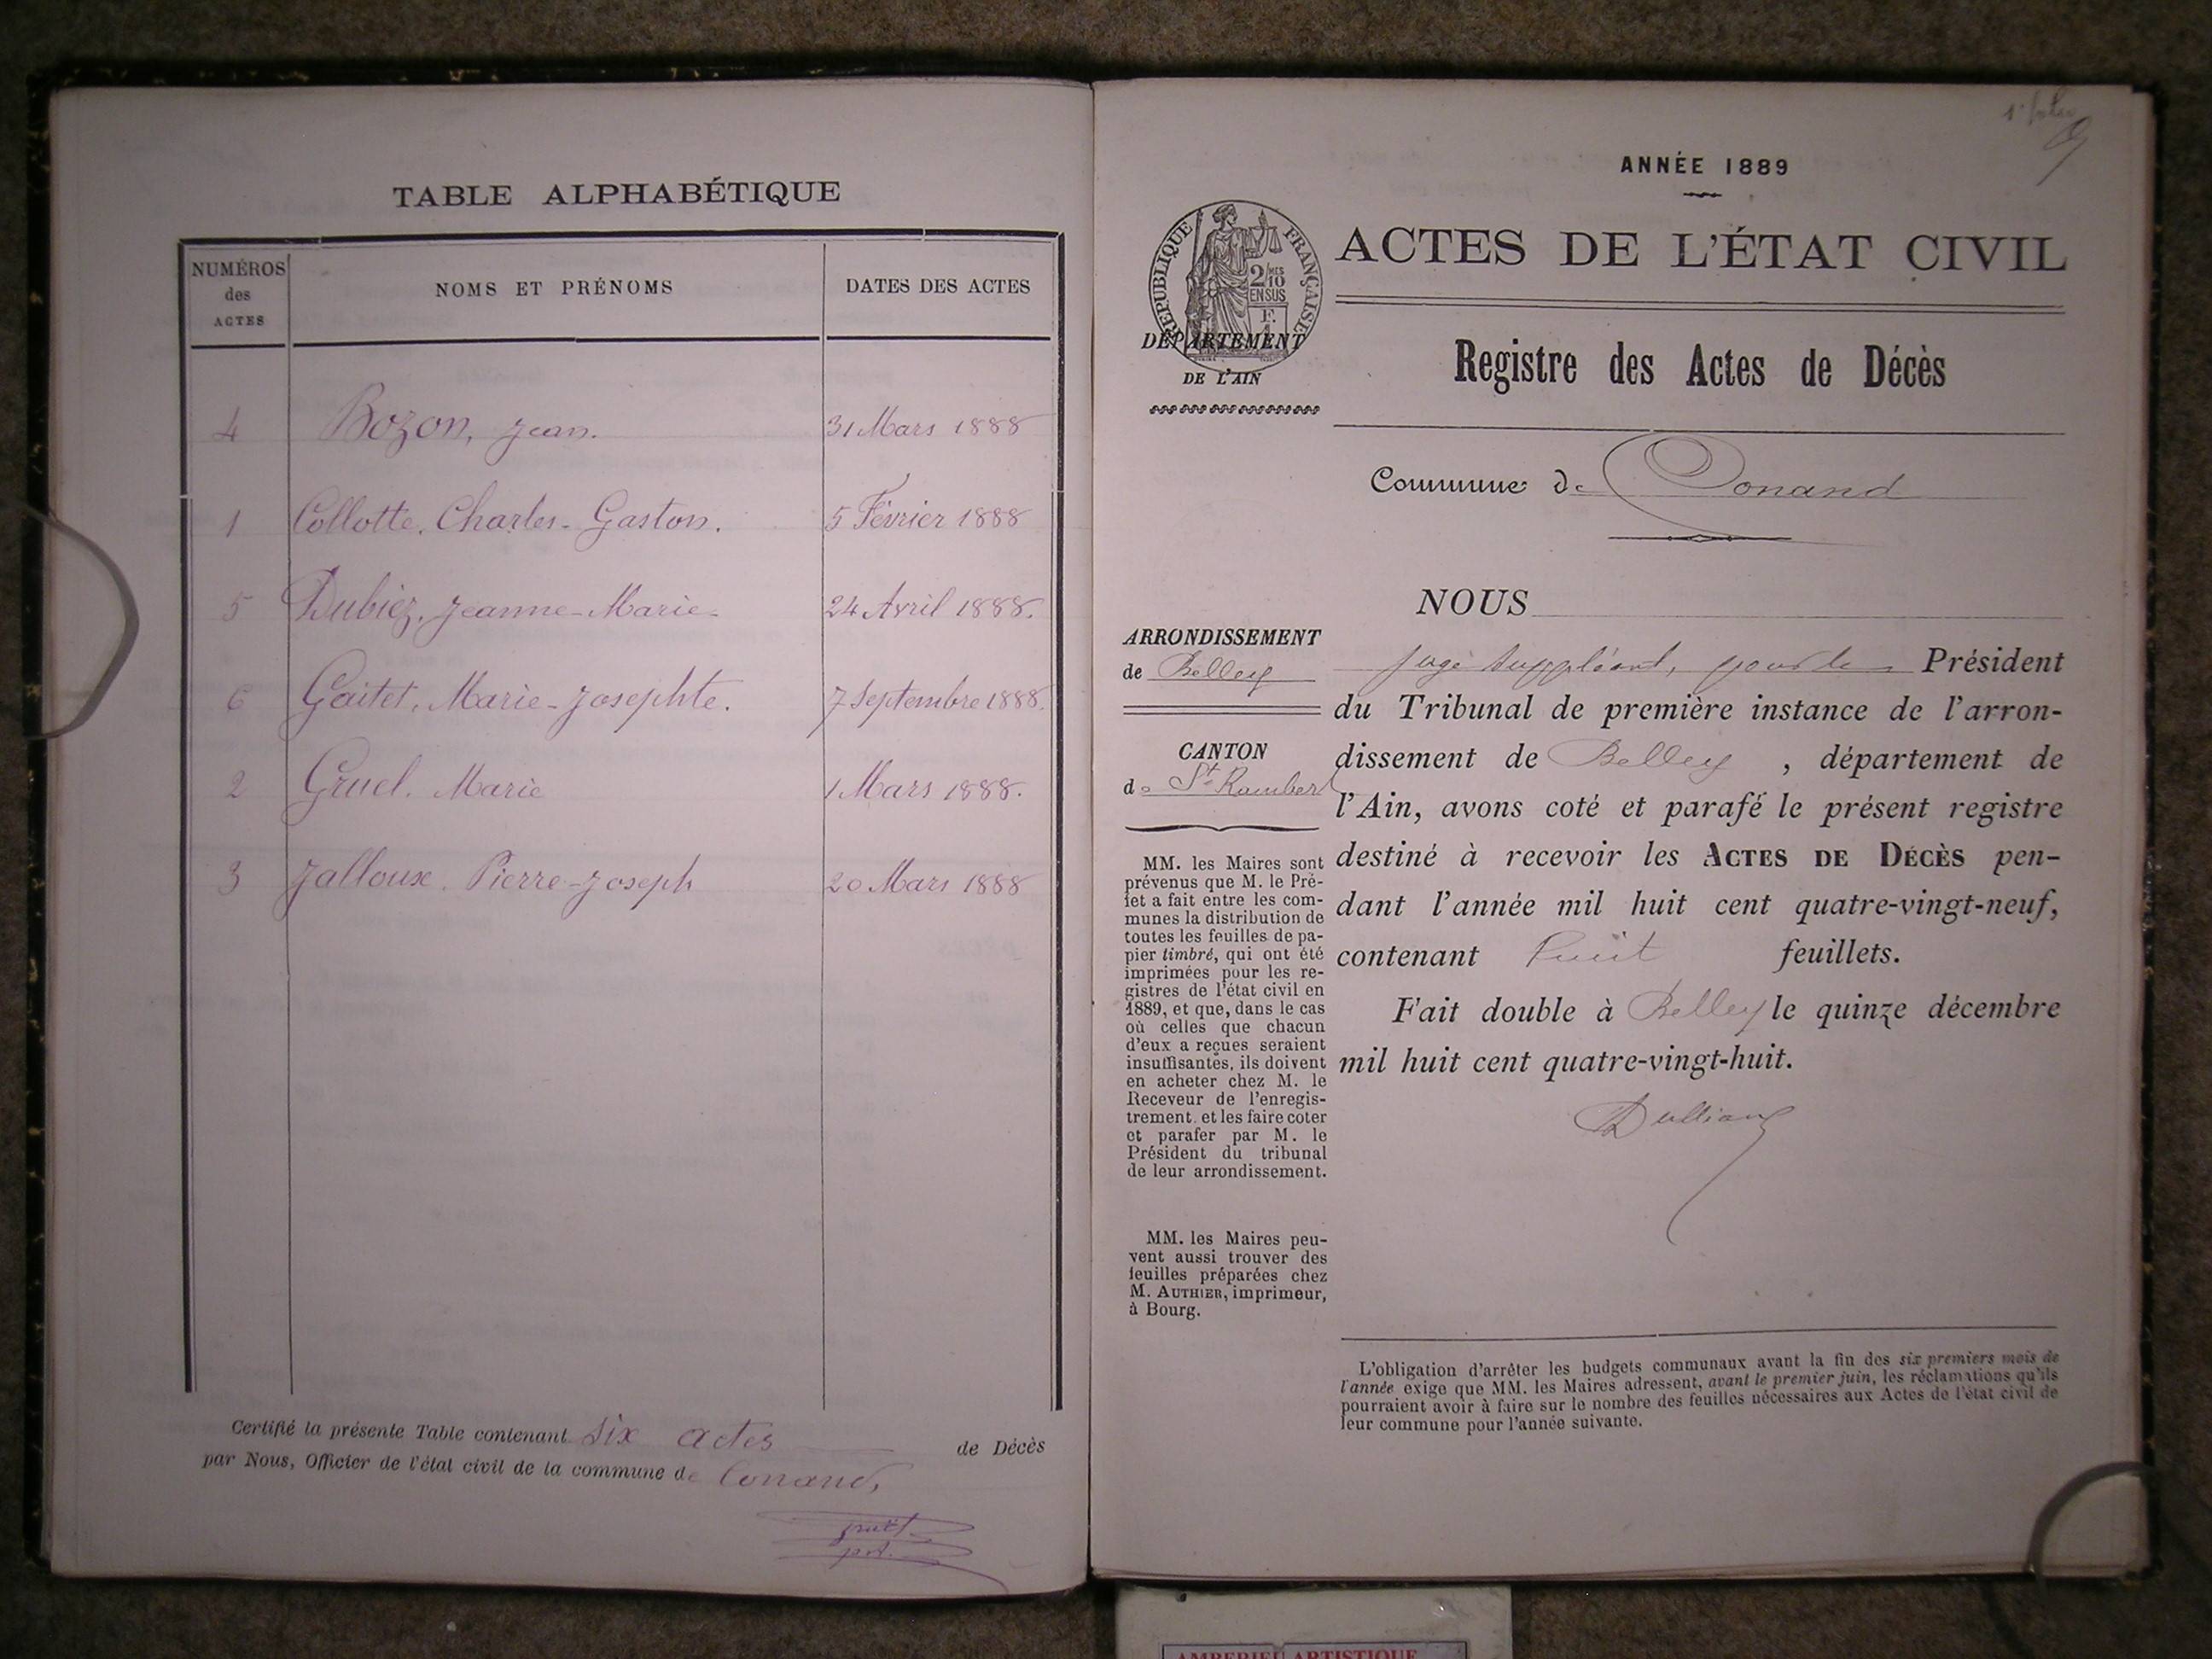 TABLE ALPHABÉTIQUE
NUMÉROS des ACTES
NOMS ET PRÉNOMS
DATES DES ACTES
4 Bozon, Jean. 31 Mars 1888
1 Collotte, Charles-Gaston. 5 Février 1888
5 Dubiez, Jeanne-Marie 24 Avril 1888.
6 Gaitet, Marie-Josephte. 7 Septembre 1888.
2 Gruel. Marie 1 Mars 1888.
3 Jalloux. Pierre-Joseph 20 Mars 1888
Certifié la présente Table contenant six actes de Décès
par Nous, Officier de l'état civil de la commune de Conand,
ANNÉE 1889
ACTES DE L'ÉTAT CIVIL
RÉPUBLIQUE FRANÇAISE
2/10
EN SUS
DÉPARTEMENT
DE L'AIN
Registre des Actes de Décès
Commune de Conand
ARRONDISSEMENT
de Belley
CANTON
de St Rambert
MM. les Maires sont
prévenus que M. le Pré-
fet a fait entre les com-
munes la distribution de
toutes les feuilles de pa-
pier timbré, qui ont été
imprimées pour les re-
gistres de l'état civil en
1889, et que, dans le cas
où celles que chacun
d'eux a reçues seraient
insuffisantes, ils doivent
en acheter chez M. le
Receveur de l'enregis-
trement, et les faire coter
et parafer par M. le
Président du tribunal
de leur arrondissement.
MM. les Maires peu-
vent aussi trouver des
feuilles préparées chez
M. AUTHIER, imprimeur,
à Bourg.
NOUS
juge suppléant, pour le Président
du Tribunal de première instance de l'arron-
dissement de Belley, département de
l'Ain, avons coté et parafé le présent registre
destiné à recevoir les ACTES DE DÉCÈS pen-
dant l'année mil huit cent quatre-vingt-neuf,
contenant huit feuillets.
Fait double à Belley le quinze décembre
mil huit cent quatre-vingt-huit.
L'obligation d'arrêter les budgets communaux avant la fin des six premiers mois de
l'année exige que MM. les Maires adressent, avant le premier juin, les réclamations qu'ils
pourraient avoir à faire sur le nombre des feuilles nécessaires aux Actes de l'état civil de
leur commune pour l'année suivante.
AMBERIEU ARTISTIQUE